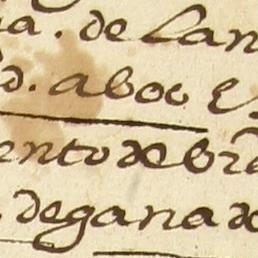 ia. de Lan
d. aboc
ento de bra
. de gana de